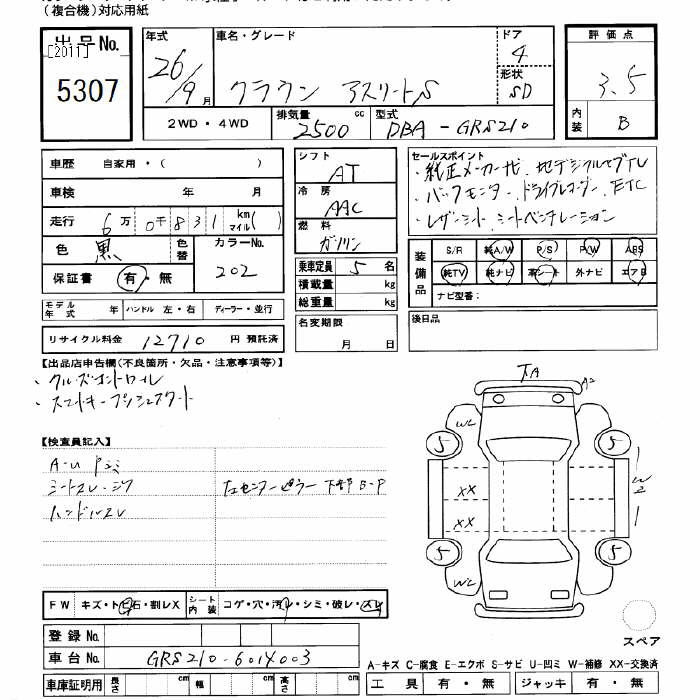 (複合機)対応用紙
出品No.
[2011]
5307
年式
26/9月
車名・グレード
クラウン アスリートS
ドア
4
形状
SD
評価点
3.5
内装
B
2WD・4WD
排気量
2500cc
型式
DBA-GRS210
車歴 自家用・( )
車検 年 月
走行 6万0千831km マイル( )
色 黒
色替
カラーNo.
202
保証書 有・無
シフト
AT
冷房
AAC
燃料
ガソリン
乗車定員 5名
積載量 kg
総重量 kg
セールスポイント
・純正メーカーナビ、地デジフルセグTV
・バックモニター、ドライブレコーダー、ETC
・レザーシート、シートベンチレーション
装備品
S/R 純A/W P/S P/W ABS
純TV 純ナビ 革シート 外ナビ エアB
ナビ型番:
モデル年式
ハンドル 左・右
ディーラー・並行
リサイクル料金 12710円 預託済
名変期限
月 日
後日品
【出品店申告欄(不良箇所・欠品・注意事項等)】
・クルーズコントロール
・スマートキープッシュスタート
【検査員記入】
A-U Pシミ
シートスレ・シワ
ハンドルスレ
左センターピラー下部B-P
下A
A2
W2
5
5
XX
XX
W2
5
5
W2
FW キズ・ト石・割レX
シート内装 コゲ・穴・汚レ・シミ・破レ・スレ
登録No.
車台No. GRS210-6014003
車庫証明用 長さ cm 幅 cm 高さ cm
スペア
A-キズ C-腐食 E-エクボ S-サビ U-凹ミ W-補修 XX-交換済
工具 有・無 ジャッキ 有・無